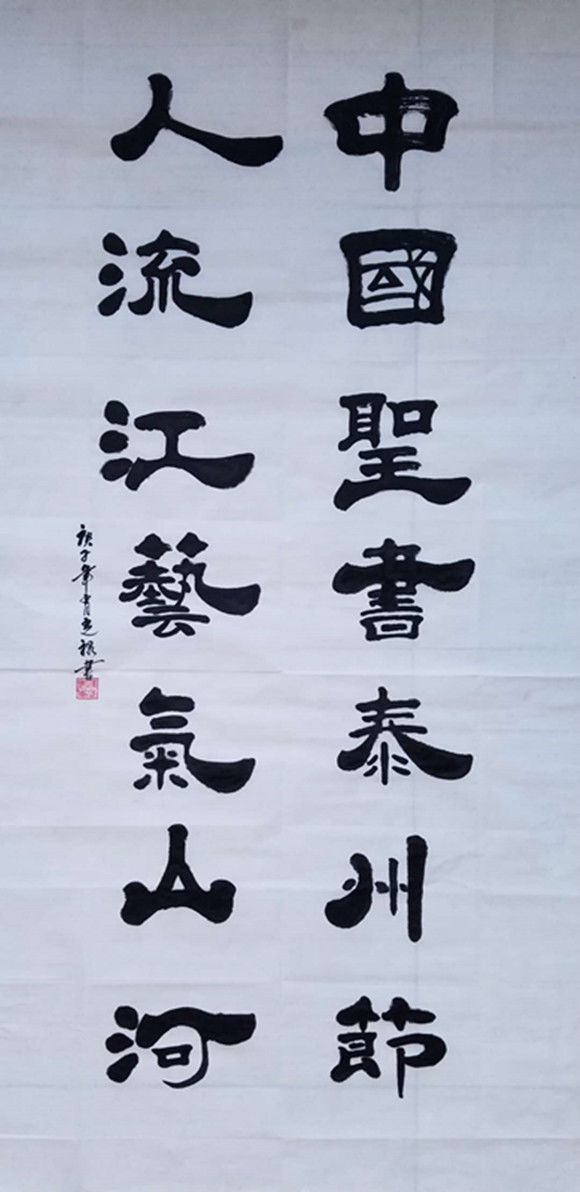 中國聖書泰州節
人流江藝氣山河
庚子年
書